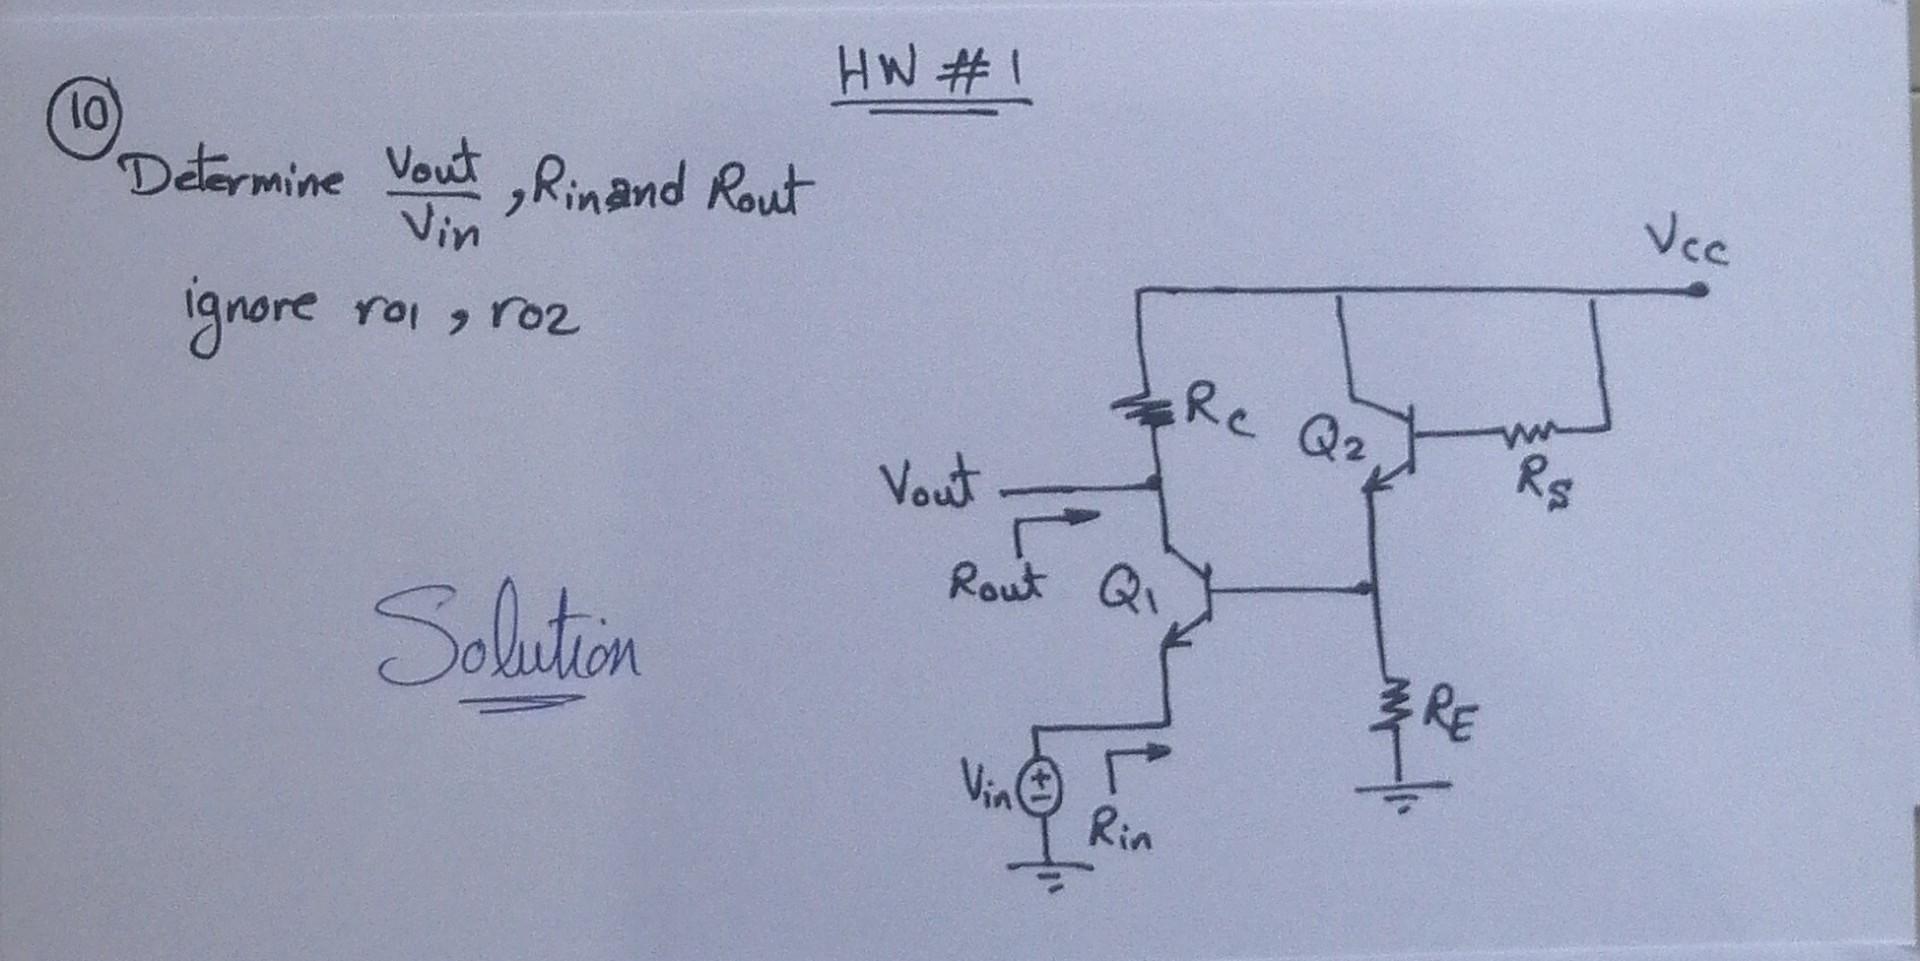 HW # 1
10
Determine Vout/Vin , Rin and Rout
ignore ro1 , ro2
Vcc
Rc
Q2
Rs
Vout
Rout
Q1
Solution
RE
Vin
Rin